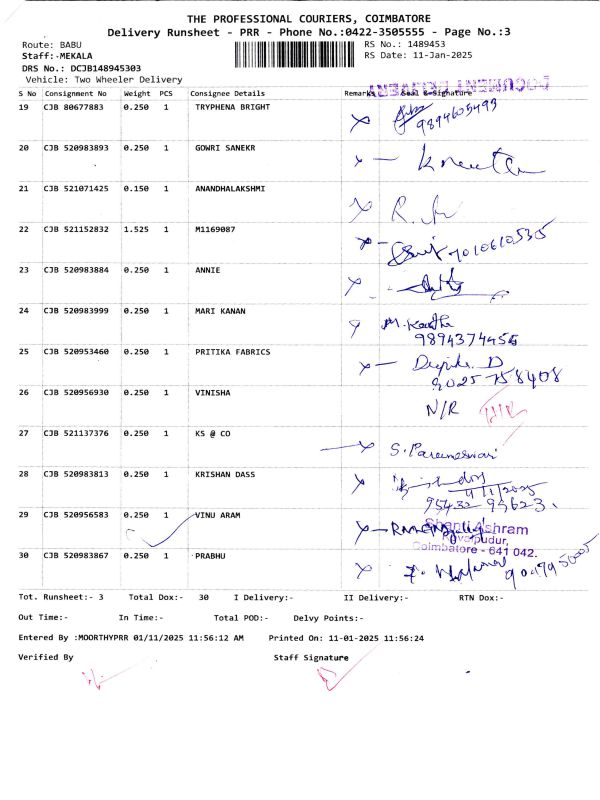 THE PROFESSIONAL COURIERS, COIMBATORE
Delivery Runsheet - PRR - Phone No.:0422-3505555 - Page No.:3
Route: BABU RS No.: 1489453
Staff:-MEKALA RS Date: 11-Jan-2025
DRS No.: DCJB148945303
Vehicle: Two Wheeler Delivery
DOCUMENT DELIVERY
S No Consignment No Weight PCS Consignee Details Remarks Seal & Signature
19 CJB 80677883 0.250 1 TRYPHENA BRIGHT
9894605493
20 CJB 520983893 0.250 1 GOWRI SANEKR
21 CJB 521071425 0.150 1 ANANDHALAKSHMI
22 CJB 521152832 1.525 1 M1169087
7010610535
23 CJB 520983884 0.250 1 ANNIE
24 CJB 520983999 0.250 1 MARI KANAN
9894374455
25 CJB 520953460 0.250 1 PRITIKA FABRICS
9025758408
26 CJB 520956930 0.250 1 VINISHA N/R
27 CJB 521137376 0.250 1 KS @ CO S. Parameswari
28 CJB 520983813 0.250 1 KRISHAN DASS
11/1/2025
95432 94623
29 CJB 520956583 0.250 1 VINU ARAM
Shanti Ashram
Kovaipudur,
Coimbatore - 641 042.
30 CJB 520983867 0.250 1 PRABHU
Tot. Runsheet:- 3 Total Dox:- 30 I Delivery:- II Delivery:- RTN Dox:-
Out Time:- In Time:- Total POD:- Delvy Points:-
Entered By :MOORTHYPRR 01/11/2025 11:56:12 AM Printed On: 11-01-2025 11:56:24
Verified By Staff Signature